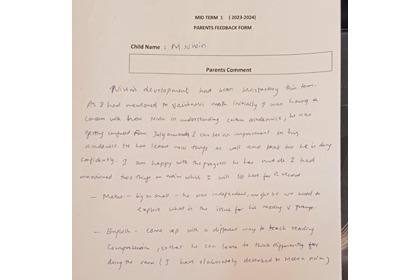 MID TERM 1 (2023-2024)
PARENTS FEEDBACK FORM
Child Name : M. Nivin
Parents Comment
Nivin's development had been satisfactory this term.
As I had mentioned to Vaishnavi math initially I was having a
concern with how Nivin is understanding certain academics, he was
getting confused from July onwards I can see an improvement in his
academics. He has learnt new things as well and that too he is doing
confidently. I am happy with the progress he has made I had
mentioned two things on Nivin which I will list here for record
- Maths - big or small - he was independent, might be we need to
explore what is the issue for his reading & grasp.
- English - come up with a different way to teach reading
Comprehension, so that he can learn to think differently for
doing the same (I have elaborately described to Meena ma'am)